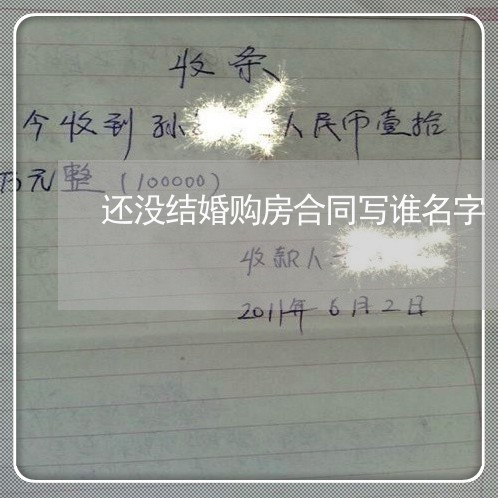 收条
今收到孙 人民币壹拾
万元整(100000)
还没结婚购房合同写谁名字
收款人
2011年6月2日